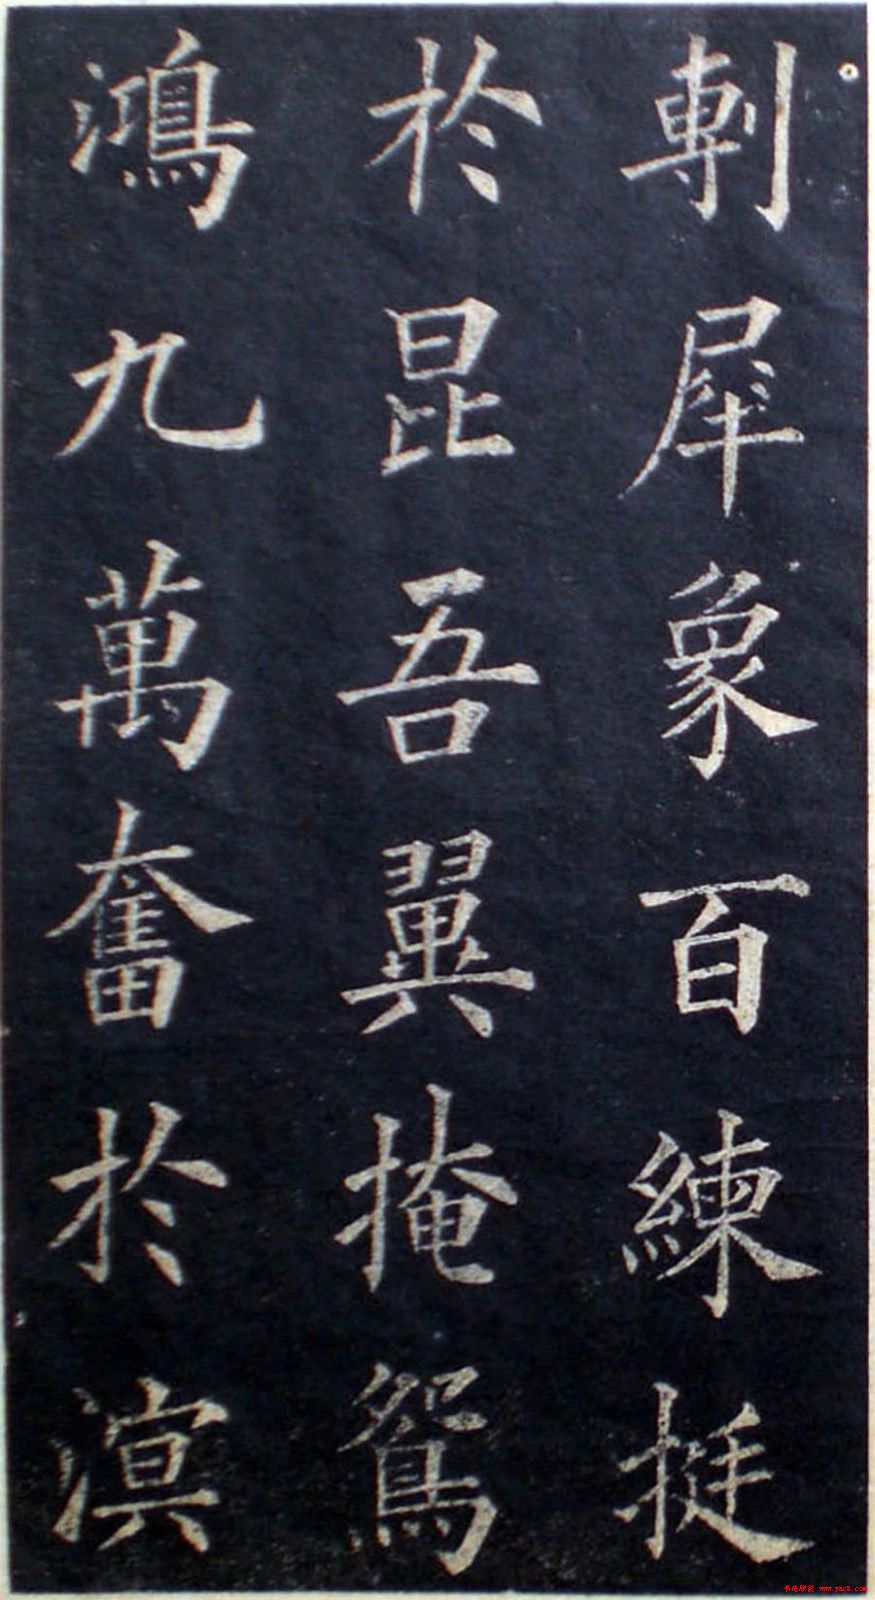 剸犀象百練挺
於昆吾翼掩鴛
鴻九萬奮於溟
书法欣赏 www.yac8.com